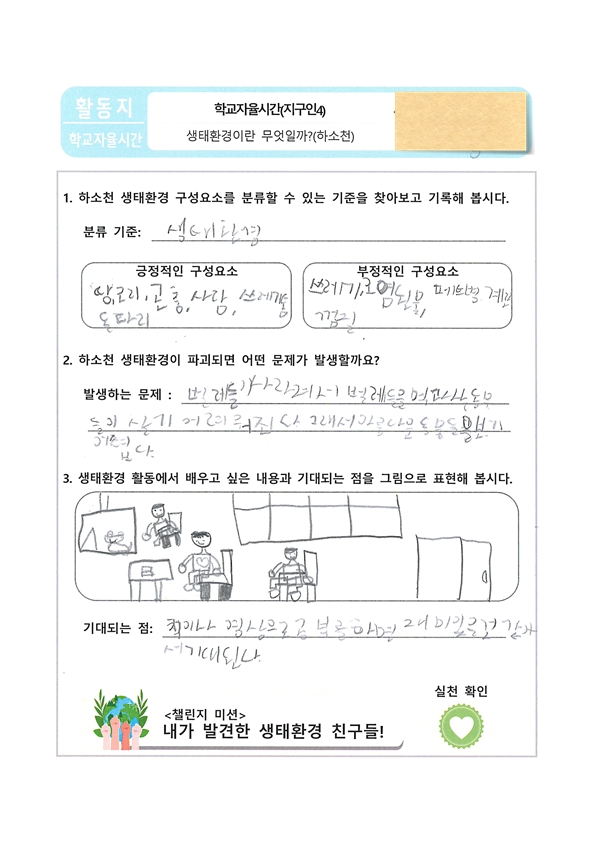 활동지
학교자율시간
학교자율시간(지구인4)
생태환경이란 무엇일까?(하소천)
1. 하소천 생태환경 구성요소를 분류할 수 있는 기준을 찾아보고 기록해 봅시다.
분류 기준: 생태환경
긍정적인 구성요소
부정적인 구성요소
왕오리, 곤충, 사람, 쓰레기통
돌다리
쓰레기, 오염된물, 페트병
2. 하소천 생태환경이 파괴되면 어떤 문제가 발생할까요?
발생하는 문제 : 벌레들이 사라져서 벌레들을 먹고사는 동물
들이 살기 어려워진다 그래서 다른 동물들을 보기
3. 생태환경 활동에서 배우고 싶은 내용과 기대되는 점을 그림으로 표현해 봅시다.
기대되는 점: 책이나 영상으로 공부를 하면 재미있을것 같아
서 기대된다
실천 확인
<챌린지 미션>
내가 발견한 생태환경 친구들!